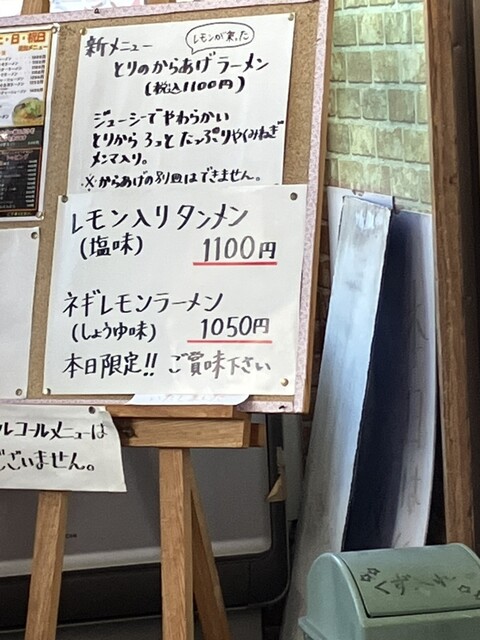 新メニュー
レモンが乗った
とりのからあげラーメン
(税込1100円)
ジューシーでやわらかい
とりから3っと たっぷりやくみねぎ
メンマ入り。
※からあげの別皿はできません。
レモン入りタンメン
(塩味) 1100円
ネギレモンラーメン
(しょうゆ味) 1050円
本日限定!! ご賞味下さい
ルコールメニューは
ございません。
日・祝日